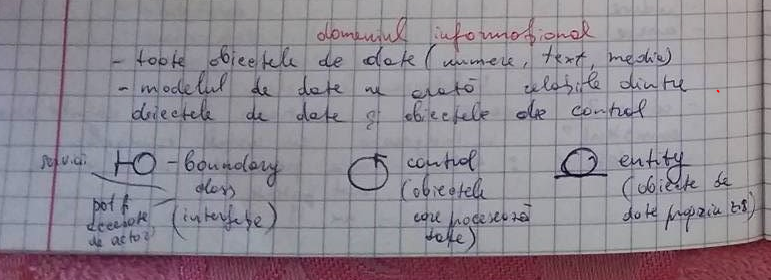 domeniul informațional
- toate obiectele de date (numere, text, media)
- modelul de date ne arată relațiile dintre
obiectele de date și obiectele de control
boundary
class
(interfețe)
pot fi
accesate
de actori
control
(obiectele
care procesează
date)
entity
(obiecte de
date propriu-zis)